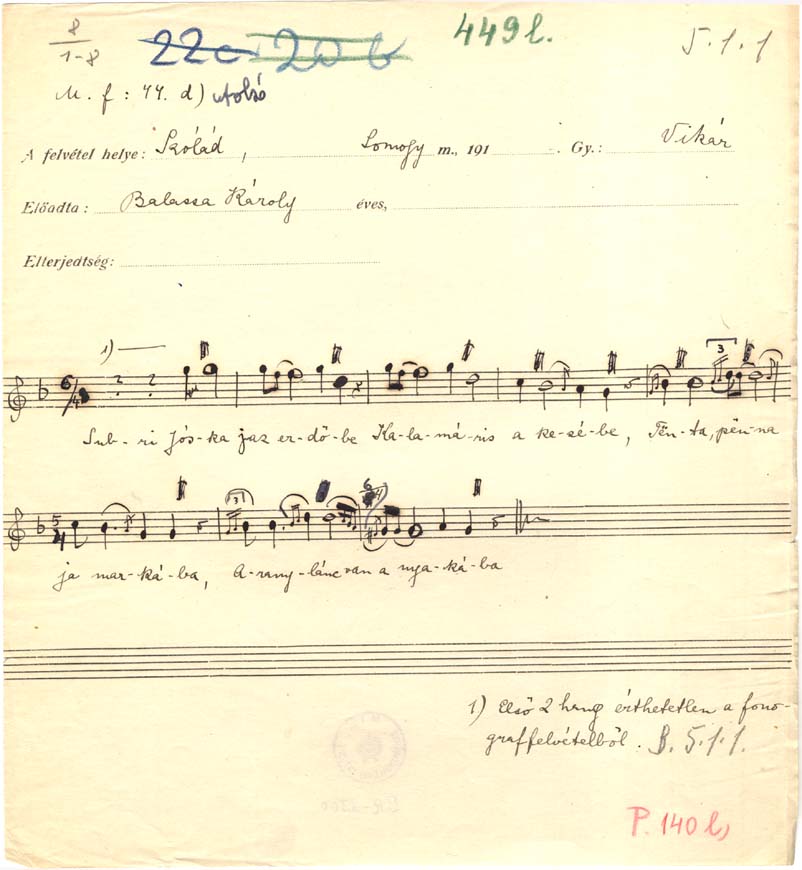 8 449 l. 5. 1. 1
1-8 22c 20 b
M. f : 44. d) utolsó
A felvétel helye: Szólád, Somogy m., 191 . Gy.: Vikár
Előadta : Balassa Károly éves,
Elterjedtség:
1)
6/4 ? ? 3
Sub-ri Jós-ka jaz er-dő-be Ka-la-má-ris a ke-sé-be, Tën-ta, pën-na
5/4 3 6/4
ja mar-ká-ba, A-rany-lánc van a nya-ká-ba
1) Első 2 hang érthetetlen a fono-
graffelvételből. B. 5. 1. 1.
P. 140 l,